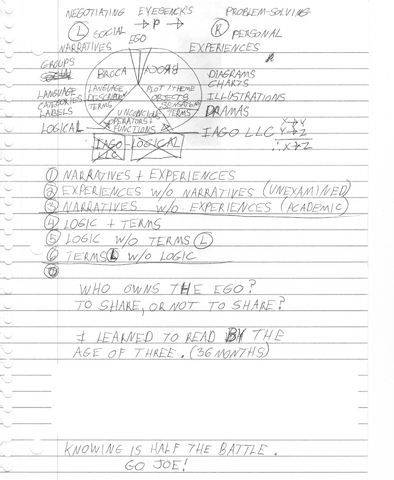 NEGOTIATING EYESENCKS PROBLEM-SOLVING
(L) SOCIAL → P → (R) PERSONAL
NARRATIVES EGO EXPERIENCES
GROUPS
BROCA BROCA DIAGRAMS
CHARTS
LANGUAGE LANGUAGE PLOT THEME ILLUSTRATIONS
CATEGORIES DESCRIPTION OBJECTS
LABELS TERMS SENSATIONS DRAMAS
UNCONSCIOUS TERMS
LOGICAL OPERATORS+ IAGO LLC X→Y
FUNCTIONS Y→Z
IAGO LOGICAL ∴X→Z
LLC
① NARRATIVES + EXPERIENCES
② EXPERIENCES W/O NARRATIVES (UNEXAMINED)
③ NARRATIVES W/O EXPERIENCES (ACADEMIC)
④ LOGIC + TERMS
⑤ LOGIC W/O TERMS (L)
⑥ TERMS W/O LOGIC
WHO OWNS THE EGO?
TO SHARE, OR NOT TO SHARE?
I LEARNED TO READ BY THE
AGE OF THREE. (36 MONTHS)
KNOWING IS HALF THE BATTLE.
GO JOE!